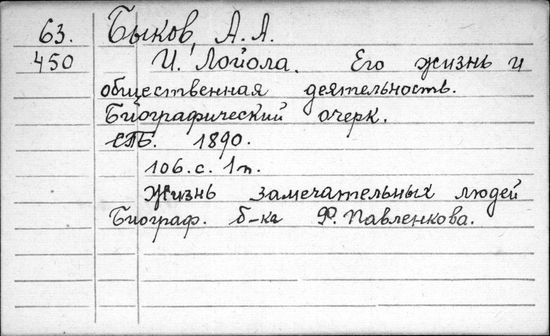 63. Быков, А. А.
450 И. Лойола. Его жизнь и
общественная деятельность.
Биографический очерк.
СПБ. 1890.
106. с. 1 п.
Жизнь замечательных людей
Биограф. б-ка Ф. Павленкова.